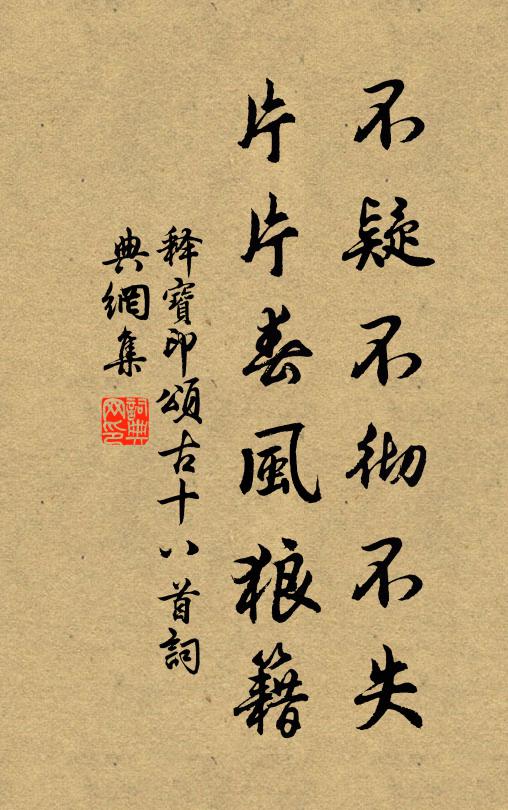 不疑不彻不失
片片春風狼籍
释寶印頌古十八首詞
典網集
詞典
网印